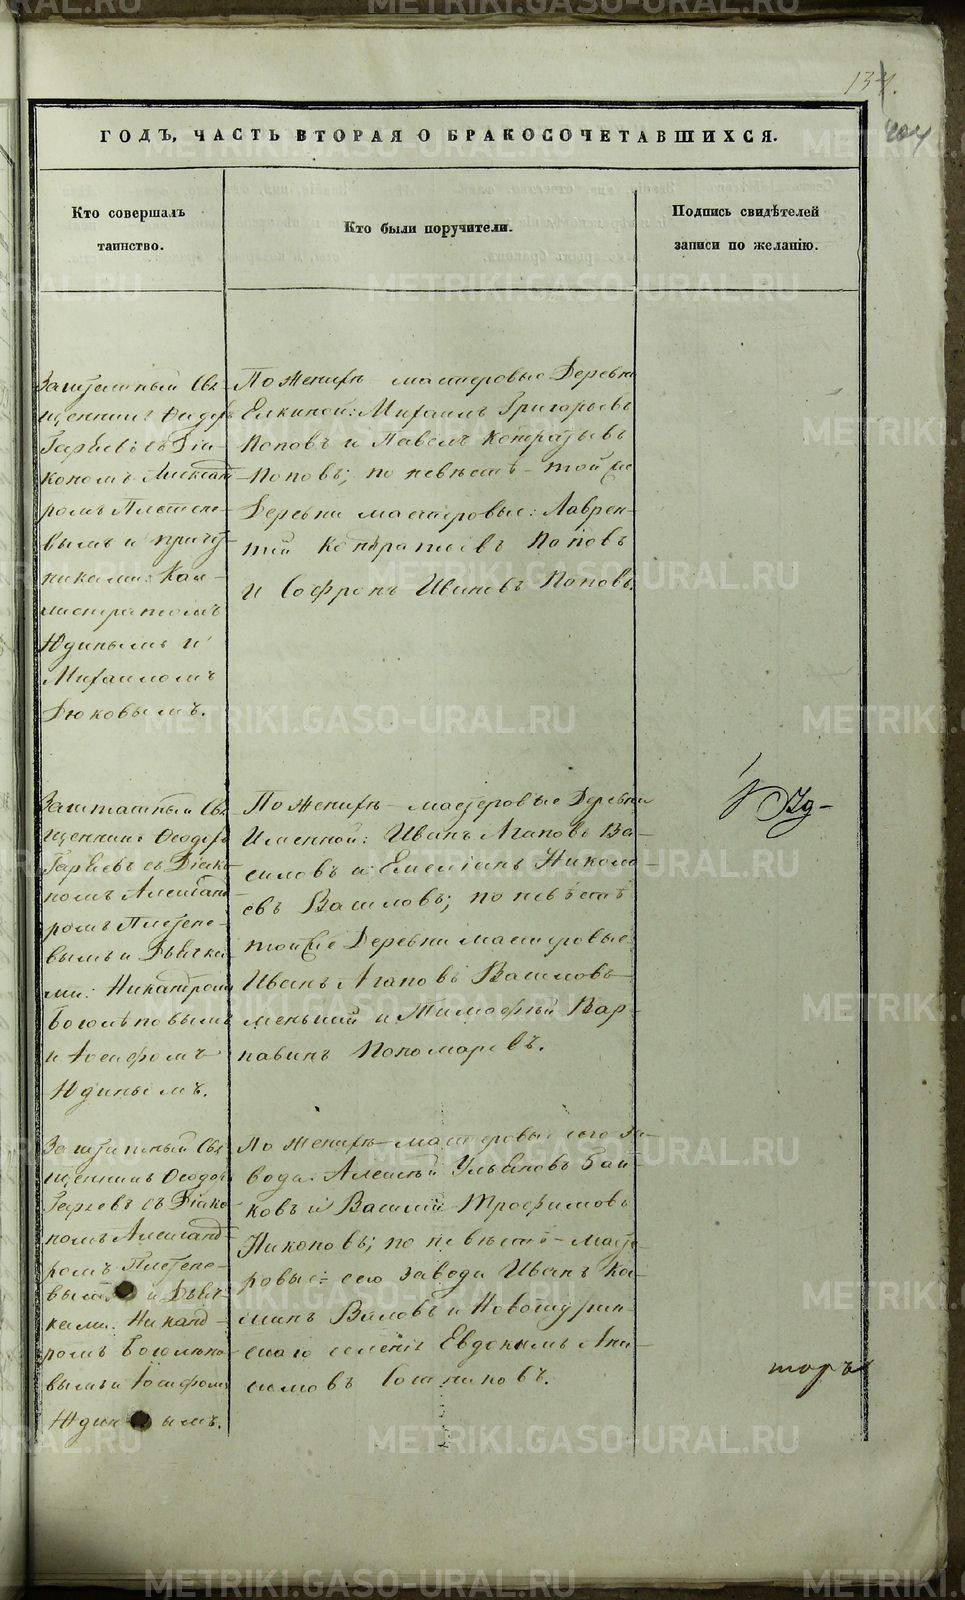 134.
204
ГОДЪ, ЧАСТЬ ВТОРАЯ О БРАКОСОЧЕТАВШИХСЯ.
Кто совершалъ
таинство.
Кто были поручители.
Подпись свидѣтелей
записи по желанію.
Заштатный Свя-
щенникъ Ѳеодоръ
съ Діа-
кономъ Александ-
ромъ Плетене-
вымъ и причет-
никами: Кал-
листратомъ
Юдинымъ и
Михаиломъ
Дюковымъ.
По женихѣ мастеровые деревни
Елкиной: Михаилъ Григорьевъ
Поповъ и Павелъ Кондратьевъ
Поповъ; по невѣстѣ той же
деревни мастеровые: Лаврен-
тій Кондратьевъ Поповъ
и Софронъ Ивановъ Поповъ.
Заштатный Свя-
щенникъ Ѳеодоръ
съ Діако-
номъ Александ-
ромъ Плетене-
вымъ и Дьячка-
ми: Никандромъ
Боголѣповымъ
и Іосифомъ
Юдинымъ.
По женихѣ мастеровые деревни
Иванъ Агаповъ Ва-
силовъ и Емеліянъ Никола-
евъ Вашловъ; по невѣстѣ
той же деревни мастеровые
Иванъ Агаповъ
меньшій и Тимофей Вар-
навинъ Пономаревъ.
Заштатный Свя-
щенникъ Ѳеодоръ
съ Діако-
номъ Александ-
ромъ Плетене-
вымъ и Дьяч-
ками: Никанд-
ромъ Боголѣпо-
вымъ и Іосифомъ
Юдинымъ.
По женихѣ мастеровые сего за-
вода: Алексѣй Ульяновъ
и Василій Трофимовъ
Никоновъ; по невѣстѣ масте-
ровые: сего завода Иванъ
и
селенія Евдокимъ Ани-
симовъ
торъ
METRIKI.GASO-URAL.RU